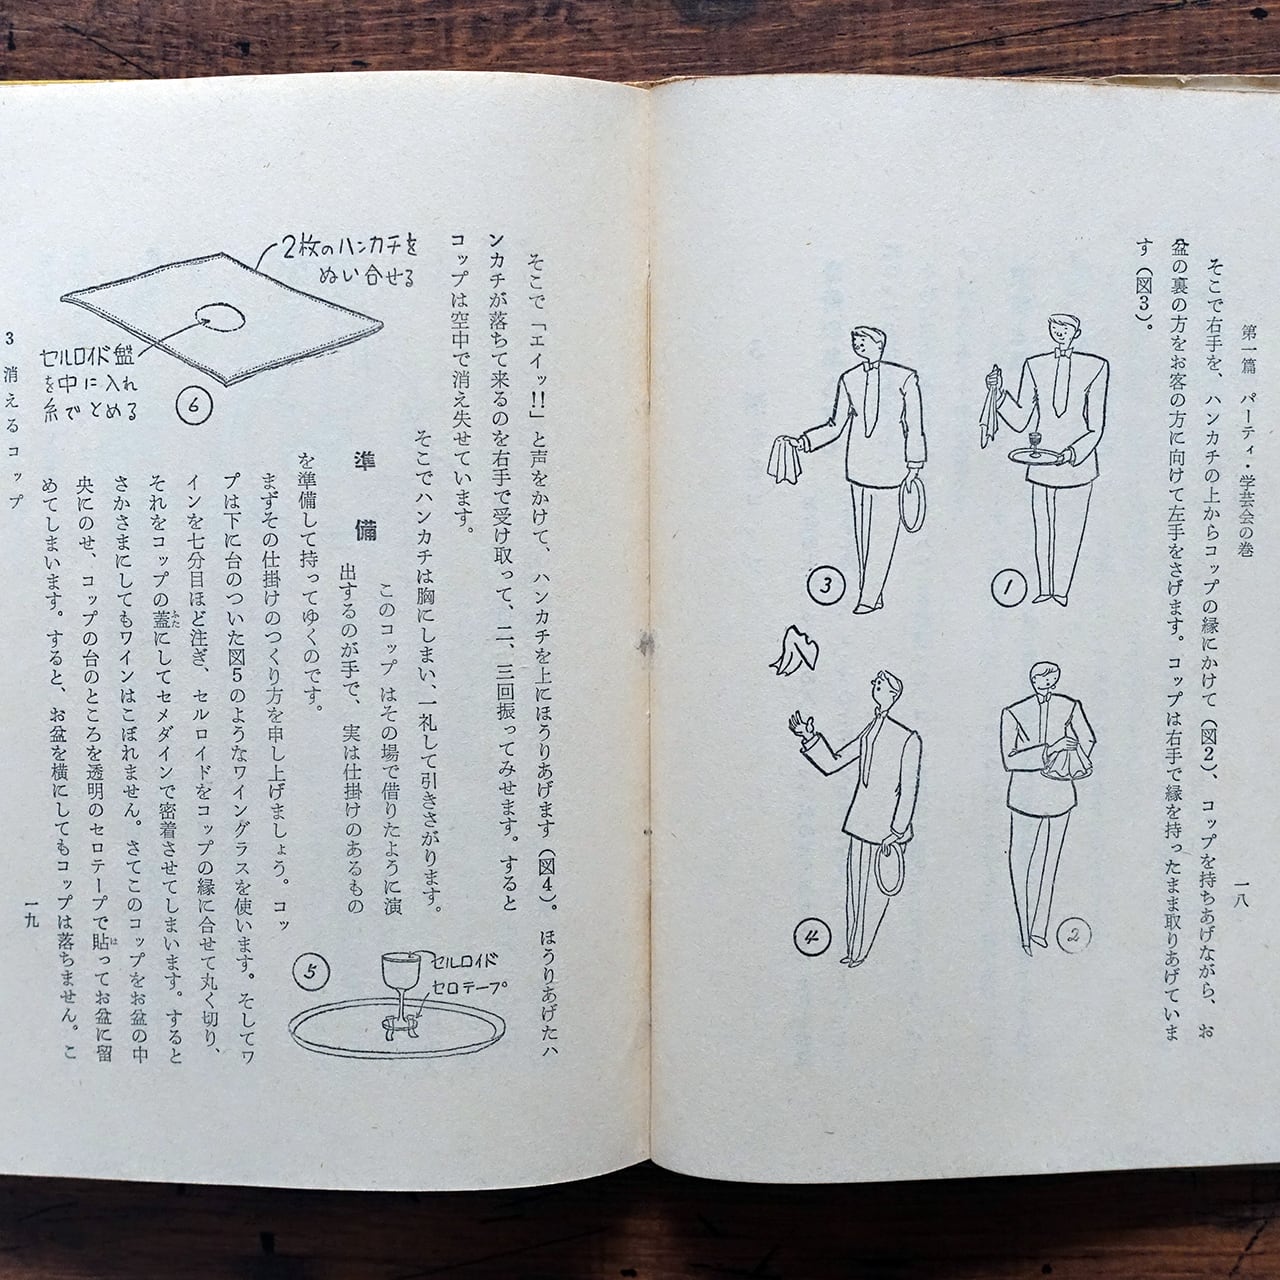 第一篇 パーティ・学芸会の巻
一八
そこで右手を、ハンカチの上からコップの縁にかけて(図2)、コップを持ちあげながら、お
盆の裏の方をお客の方に向けて左手をさげます。コップは右手で縁を持ったまま取りあげていま
す(図3)。
1
2
3
4
そこで「エイッ!!」と声をかけて、ハンカチを上にほうりあげます(図4)。ほうりあげたハ
ンカチが落ちて来るのを右手で受け取って、二、三回振ってみせます。すると
コップは空中で消え失せています。
そこでハンカチは胸にしまい、一礼して引きさがります。
準備
このコップはその場で借りたように演
出するのが手で、実は仕掛けのあるもの
を準備して持ってゆくのです。
まずその仕掛けのつくり方を申し上げましょう。コッ
プは下に台のついた図5のようなワイングラスを使います。そしてワ
インを七分目ほど注ぎ、セルロイドをコップの縁に合せて丸く切り、
それをコップの蓋にしてセメダインで密着させてしまいます。すると
ふた
さかさまにしてもワインはこぼれません。さてこのコップをお盆の中
央にのせ、コップの台のところを透明のセロテープで貼ってお盆に留
は
めてしまいます。すると、お盆を横にしてもコップは落ちません。こ
5
セルロイド
セロテープ
2枚のハンカチを
ぬい合せる
セルロイド盤
を中に入れ
糸でとめる
6
3 消えるコップ
一九